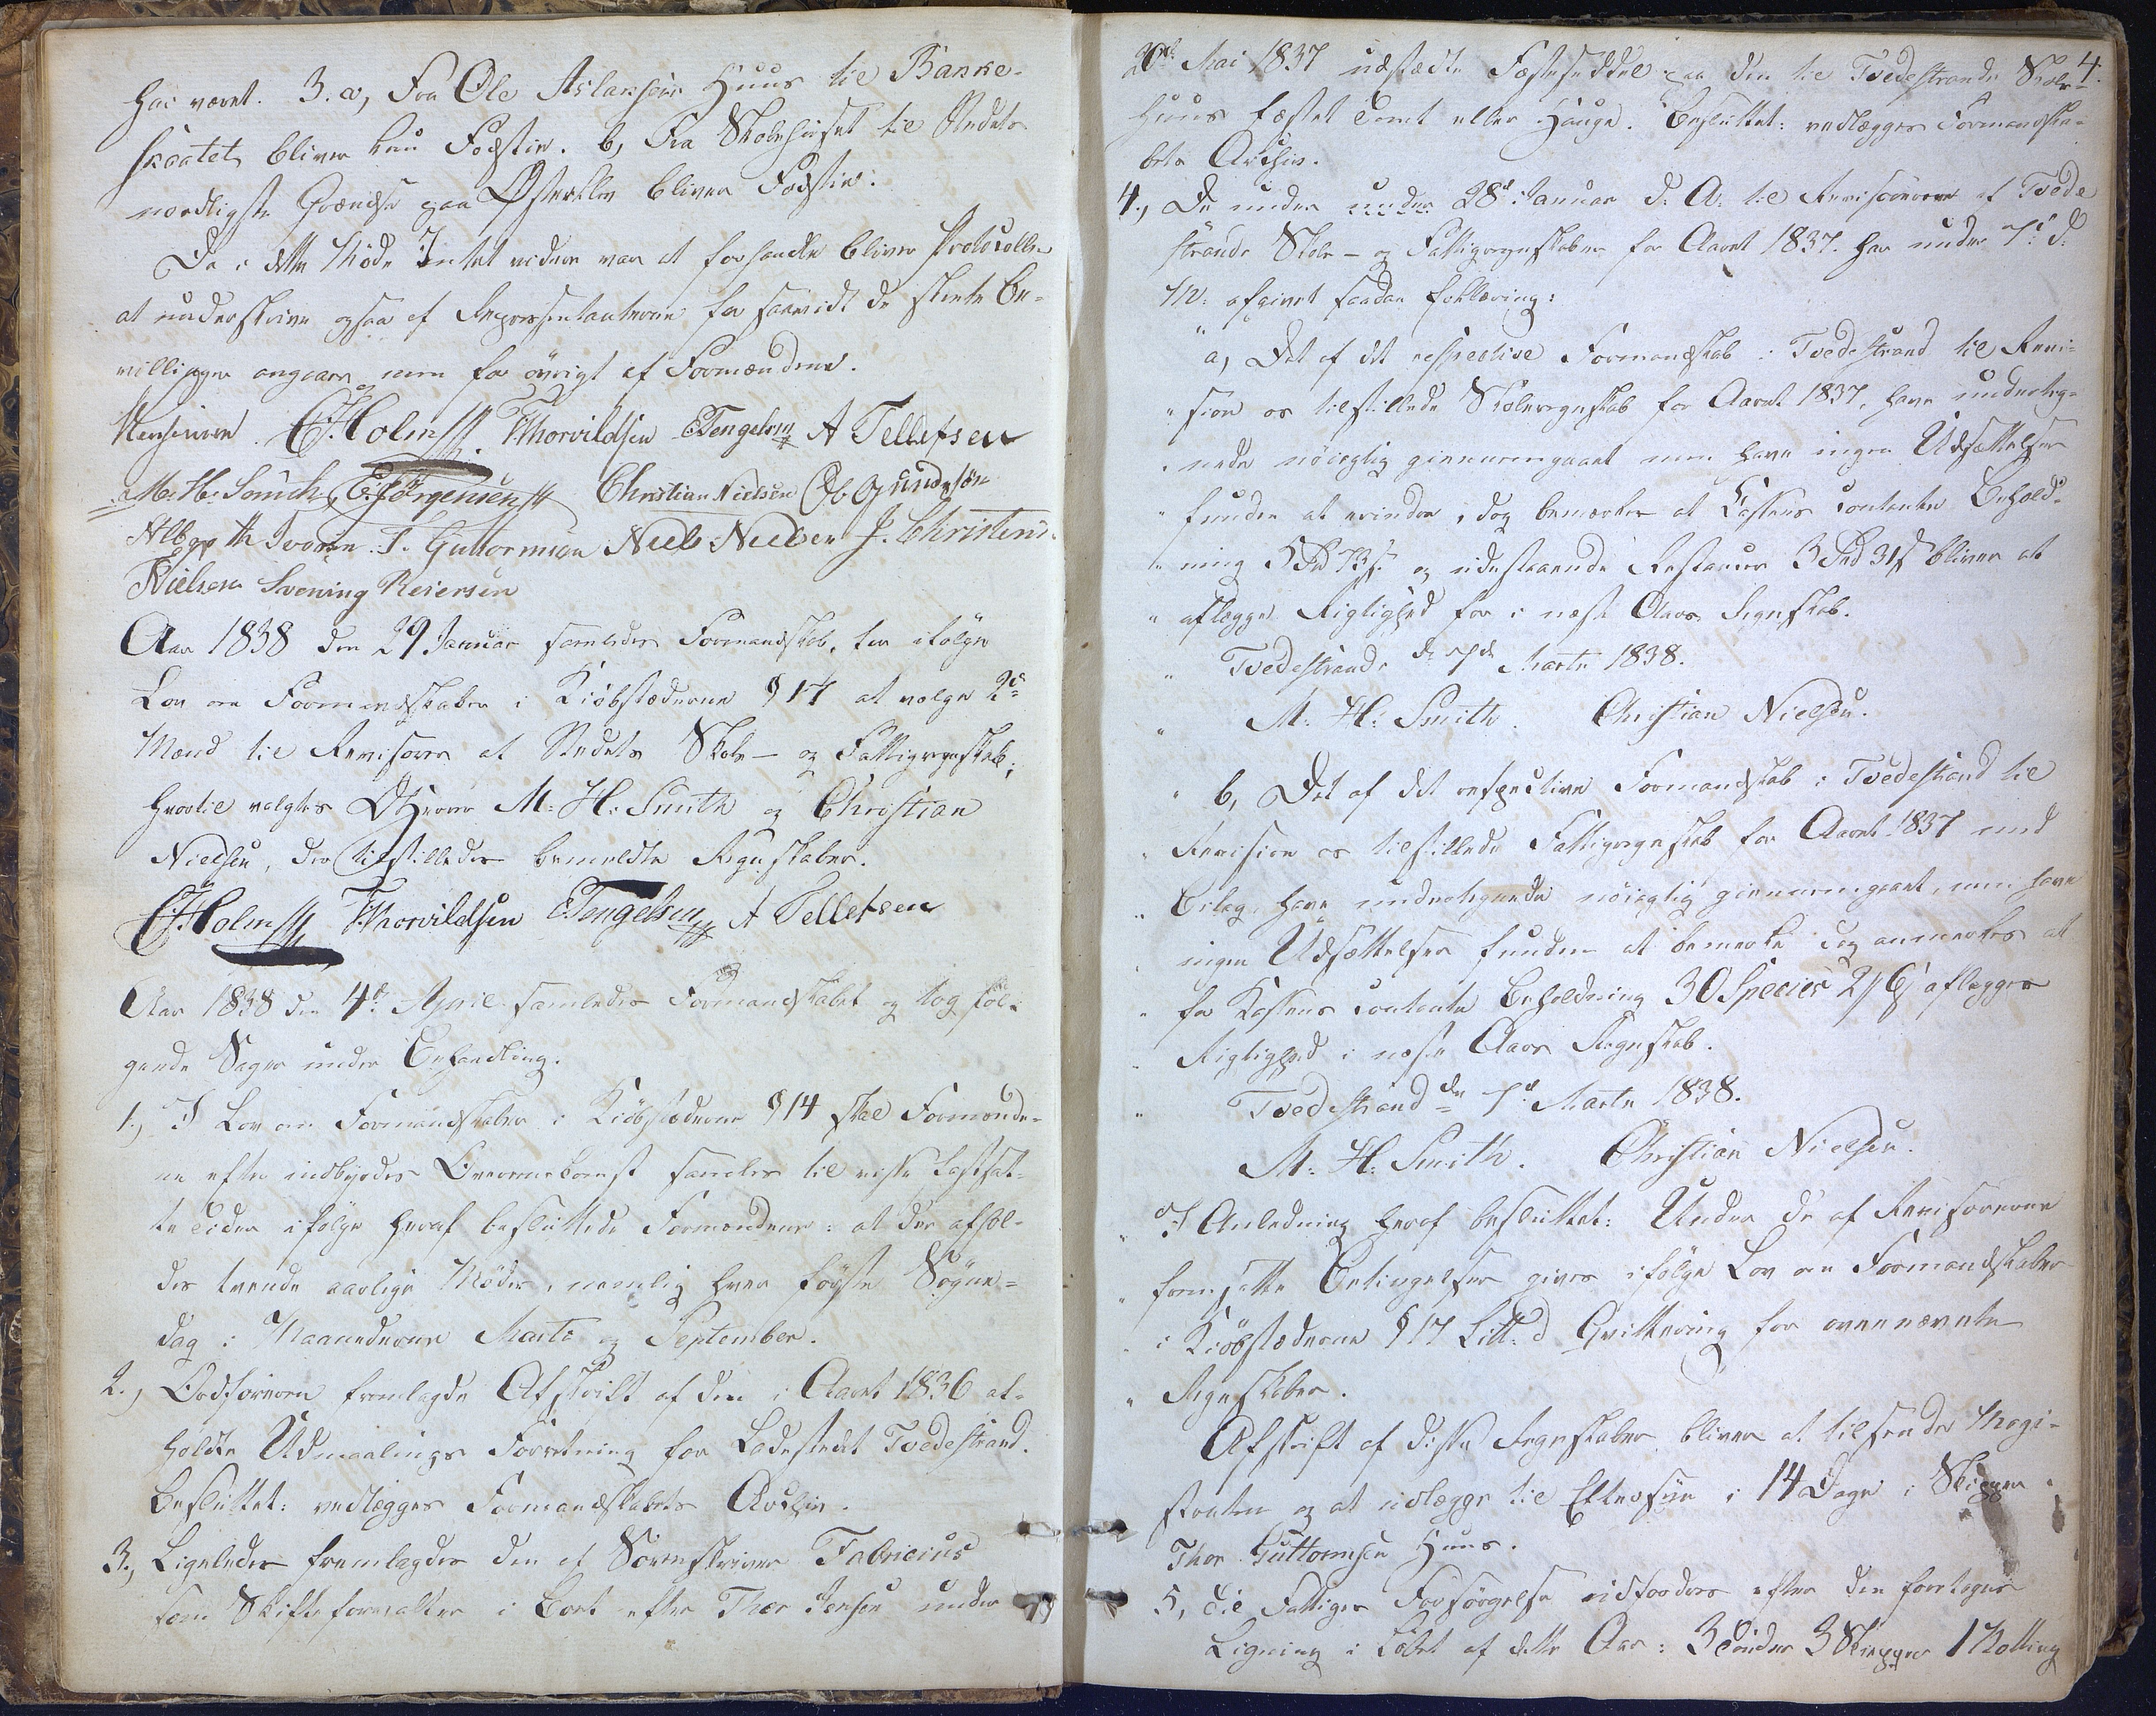 har været. 3. a, Fra Ole Aslaksens Huus til Banke-
skaatet bliver kun Fodstie. b, Fra Skolehuset til Stedets
nordligste Grændse paa Østerklev bliver Fodstie.
Da i dette Møde Intet videre var at forhandle bliver Protocollen
at underskrive ogsaa af Repræsentanterne for saavidt de skeete Be-
villinger angaar, men for øvrigt af Formændene.
C Holm FThorvildsen CTengelsen A Tellefsen
M. H. Smith E. Jørgensen Christian Nielsen Gundersøn
T. Guttormsen Niels Nielsen J. Christens.
Nielsen Svening Reiersen
Aar 1838 den 29 Januar samledes Formandskabet, for ifølge
Lov om Formandskaber i Kiøbstæderne § 17 at vælge 2de
Mænd til Revisorer af Stedets Skole- og Fattigregnskab;
hvortil valgtes DHerrer M: H: Smith og Christian
Nielsen, der tilstilledes bemeldte Regnskaber.
C Holm FThorvildsen CTengelsen A Tellefsen
Aar 1838 den 4de April samledes Formandskabet og tog føl-
gende Sager under Behandling.
1, I Lov om Formandskaber i Kiøbstæderne § 14 skal Formænde-
ne efter indbyrdes Overeenskomst samles til visse fastsat-
te Tider ifølge heraf besluttede Formændene: at der afhol-
des tvende aarlige Møder, nemlig hver første Søgne-
dag i Maanederne Marts og September.
2, Ordføreren fremlagde Afskrift af den i Aaret 1836 af-
holdte Udmaalings Forretning for Ladestedet Tvedestrand.
Besluttet: vedlægges Formandskabets Archiv.
3, Ligeledes fremlagdes den af Sorenskriver Fabricius
som Skifteforvalter i Boet efter Thor Jensen under
4.
20de Mai 1837 udstædte Fæsteseddel paa den til Tvedestrands Skole-
Huus fæstet Tomt eller Hauge. Besluttet: vedlægges Formandska-
bets Archiv.
4, De under under 28de Januar d: A: til Revisorer af Tvede
strands Skole- og Fattigregnskaber for Aaret 1837. har under 7de d:
M: afgivet saadan Erklæring:
" a, Det af det respective Formandskab i Tvedestrand til Revi-
" sion os tilstillede Skoleregnskab for Aaret 1837, have underteg-
" nede nøiagtig giennemgaaet men have ingen Udsættelser
" funden at erindre, dog bemærkes at Kassens contante Behold-
" ning 5 Spd 73 s. og udestaaende Restancer 3 Spd 31 s bliver at
" aflægge Rigtighed for i næste Aars Regnskab.
" Tvedestrand d. 7de Marts 1838.
" M: H: Smith. Christian Nielsen.
" b, Det af det respective Formandskab i Tvedestrand til
" Revision os tilstillede Fattigregnskab for Aaret 1837 med
" Bilag, have undertegnede nøiagtig giennemgaaet, men have
" ingen Udsættelser funden at bemærke dog anmærkes at
" for Kassens contante Beholdning 30 Species 2 6 aflægges
" Rigtighed i næste Aars Regnskab.
" Tvedestrand den 7de Marts 1838.
M: H: Smith. Christian Nielsen.
" I Anledning heraf besluttet: Under de af Revisorerne
" fremsatte Betingelser gives ifølge Lov om Formandskaber
" i Kiøbstæderne § 17 Litt: d Qvittering for ovennævnte
" Regnskaber.
Afskrift af disse Regnskaber bliver at tilsende Magi-
straten og at udlægge til Eftersyn i 14 Dage i Skipper
Thor Guttormsen Huus.
5, Til Fattiges Forsørgelse udfordres efter den foretagne
Ligning i Løbet af dette Aar: 3 Tønder 3 Skiepper 1 Fotting